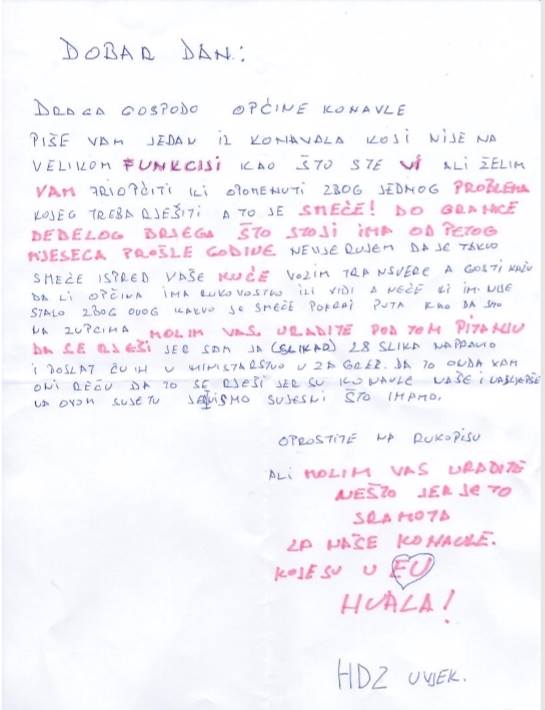 DOBAR DAN:
DRAGA GOSPODO OPĆINE KONAVLE
PIŠE VAM JEDAN IZ KONAVALA KOJI NIJE NA
VELIKOM FUNKCIJI KAO ŠTO STE VI ALI ŽELIM
VAM PRIOPČITI ILI OPOMENUTI ZBOG JEDNOG PROBLEMA
KOJEG TREBA RJEŠITI A TO JE SMEĆE! DO GRANICE
DEBELOG BRJEGA ŠTO STOJI IMA OD PETOG
MJESECA PROŠLE GODINE NEVJERUJEM DA JE TAKVO
SMEĆE ISPRED VAŠE KUĆE VOZIM TRANSVERE A GOSTI KAŽU
DA LI OPČINA IMA RUKOVOSTVO ILI VIDI A NEĆE ILI IM NIJE
STALO ZBOG OVOG KAKVO JE SMEĆE POKRAJ PUTA KAO DA STO
NA ZUPCIMA MOLIM VAS URADITE POD TOM PITANJU
DA SE RJEŠI JER SAM JA (SLIKAO) 28 SLIKA NAPRAVIO
I POSLAT ĆU IH U MINISTARSTVO U ZAGREB. DA TO ONDA VAM
ONI REĆU DA TO SE RJEŠI JER SU KONAVLE NAŠE I NAJLJEPŠE
NA OVOM SVJETU JELISMO SVJESNI ŠTO IMAMO.
OPROSTITE NA RUKOPISU
ALI MOLIM VAS URADITE
NEŠTO JER JE TO
SRAMOTA
ZA NAŠE KONAVLE.
KOJE SU U EU
HVALA!
HDZ UVJEK.